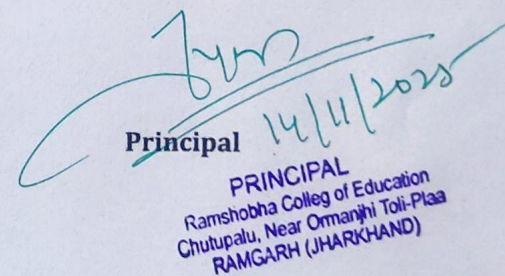 Principal
14/11/2025
PRINCIPAL
Ramshobha Colleg of Education
Chutupalu, Near Ormanjhi Toli-Plaa
RAMGARH (JHARKHAND)